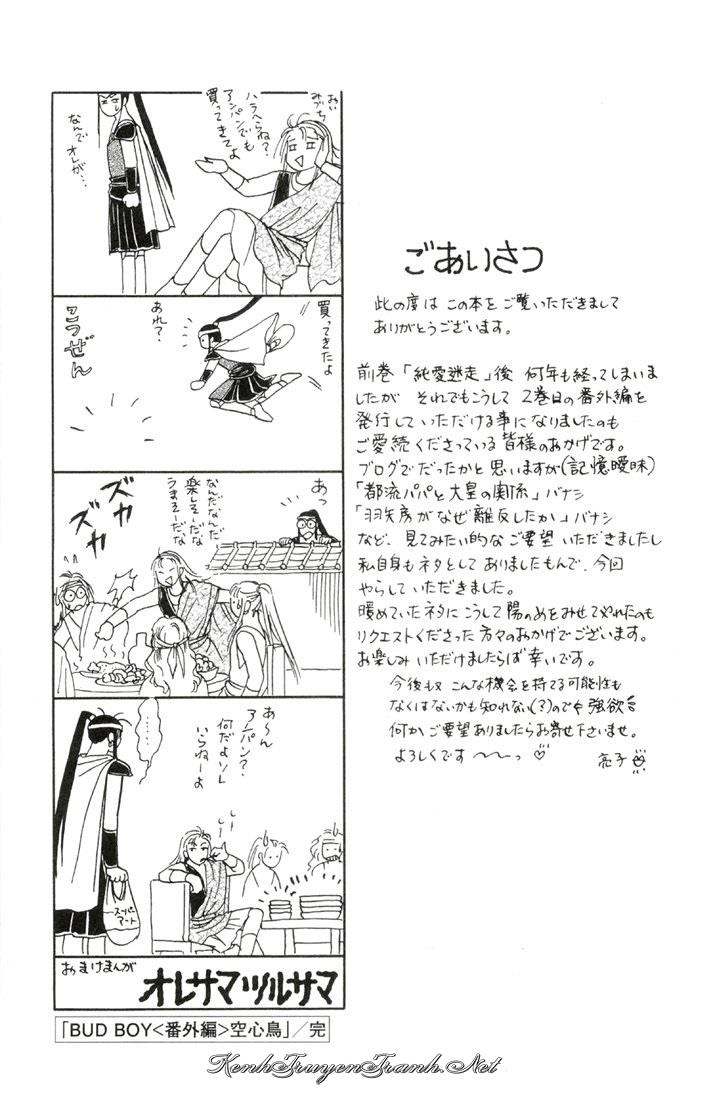 おい
みづち
ハラへらね?
アンパンでも
買ってきてよ
なんでオレが…
買ってきたよ
あれ?
こつぜん
あっ
なんだなんだ
楽しそーだな
うまそーだな
ズカ
ズカ
あ〜ん
アンパン?
何だよソレ
いらねーよ
……
しーしー
スーパー
マート
おまけまんが
オレサマツルサマ
「BUD BOY<番外編>空心鳥」/完
ごあいさつ
此の度は この本をご覧いただきまして
ありがとうございます。
前巻「純愛迷走」後 何年も経ってしまいま
したが それでもこうして 2巻目の番外編を
発行していただける事になりましたのも
ご愛続くださっている皆様のおかげです。
ブログでだったかと思いますが(記憶曖昧)
「都流パパと大皇の関係」バナシ
「羽矢房がなぜ離反したか」バナシ
など、見てみたい的なご要望いただきましたし
私自身もネタとしてありましたもんで、今回
やらしていただきました。
暖めていたネタにこうして陽のめをみせてやれたのも
リクエストくださった方々のおかげでございます。
お楽しみいただけましたらば幸いです。
今後も又 こんな機会を持てる可能性も
なくはないかも知れない(?)ので 強欲
何か ご要望ありましたらお寄せ下さいませ。
よろしくです〜〜っ♡
亮子
KenhTruyenTranh.Net